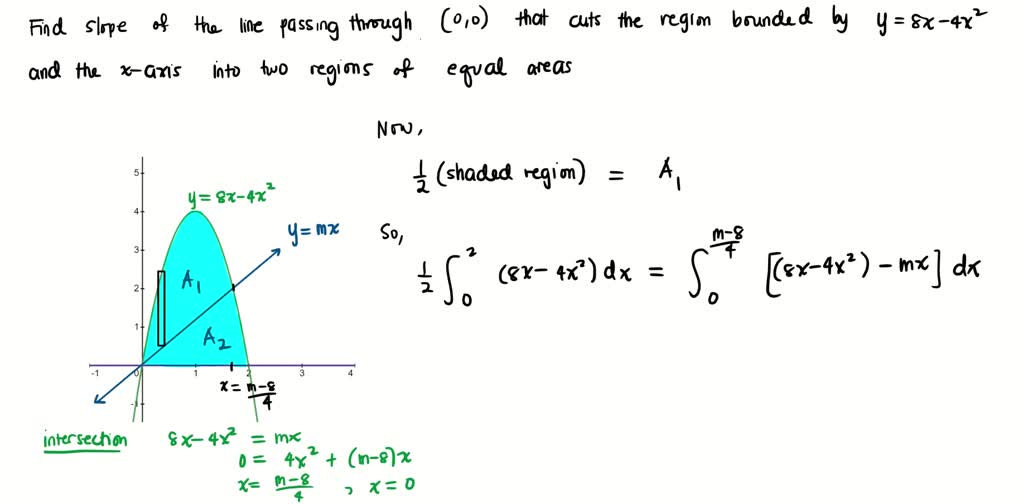 Find slope of the line passing through (0,0) that cuts the region bounded by y = 8x-4x²
and the x-axis into two regions of equal areas
Now,
½ (shaded region) = A₁
So,
½ ∫₀² (8x-4x²) dx = ∫₀^((m-8)/4) [(8x-4x²) - mx] dx
y = 8x-4x²
y = mx
A₁
A₂
5
4
3
2
1
-1
-1 0 1 2 3 4
x = (m-8)/4
intersection 8x-4x² = mx
0 = 4x² + (m-8)x
x = (m-8)/4 , x = 0